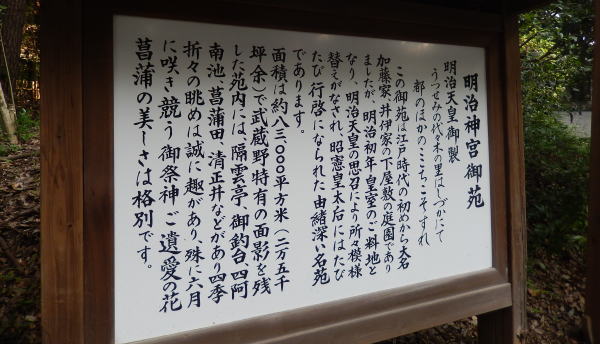 明治神宮御苑
明治天皇御製
うつせみの代々木の里はしづかにて
都のほかのここちこそすれ
この御苑は江戸時代の初めから大名
加藤家、井伊家の下屋敷の庭園であり
ましたが、明治初年皇室のご料地と
なり、明治天皇の思召により所々模様
替えがなされ、昭憲皇太后にはたび
たび行啓になられた由緒深い名苑
であります。
面積は約八三、〇〇〇平方米(二万五千
坪余)で武蔵野特有の面影を残
した苑内には、隔雲亭、御釣台、四阿
南池、菖蒲田、清正井などがあり四季
折々の眺めは誠に趣があり、殊に六月
に咲き競う御祭神ご遺愛の花
菖蒲の美しさは格別です。